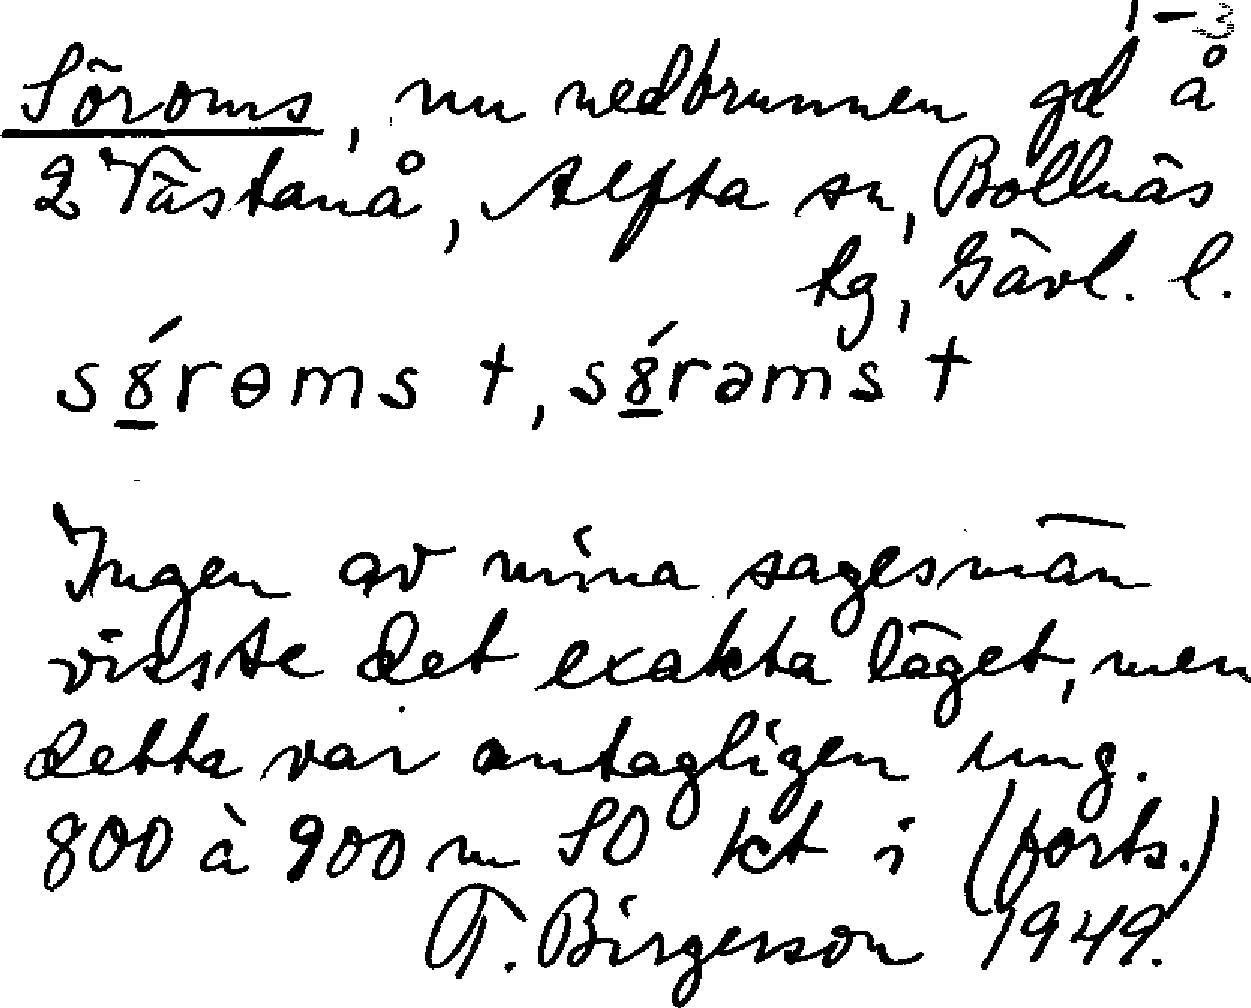 1-3
Söroms, nu nedbrunnen gd å
2 Västanå, Alfta sn, Bollnäs
tg, Gävl. l.
s8́rɵms †, s8́rəms †
Ingen av mina sagesmän
visste det exakta läget, men
detta var antagligen ung.
800 à 900 m SO kt i (forts.)
T. Birgerson 1949.